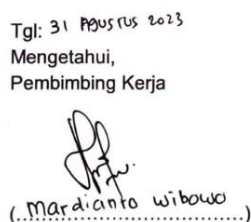 Tgl: 31 Agustus 2023
Mengetahui,
Pembimbing Kerja
(Mardianto Wibowo)